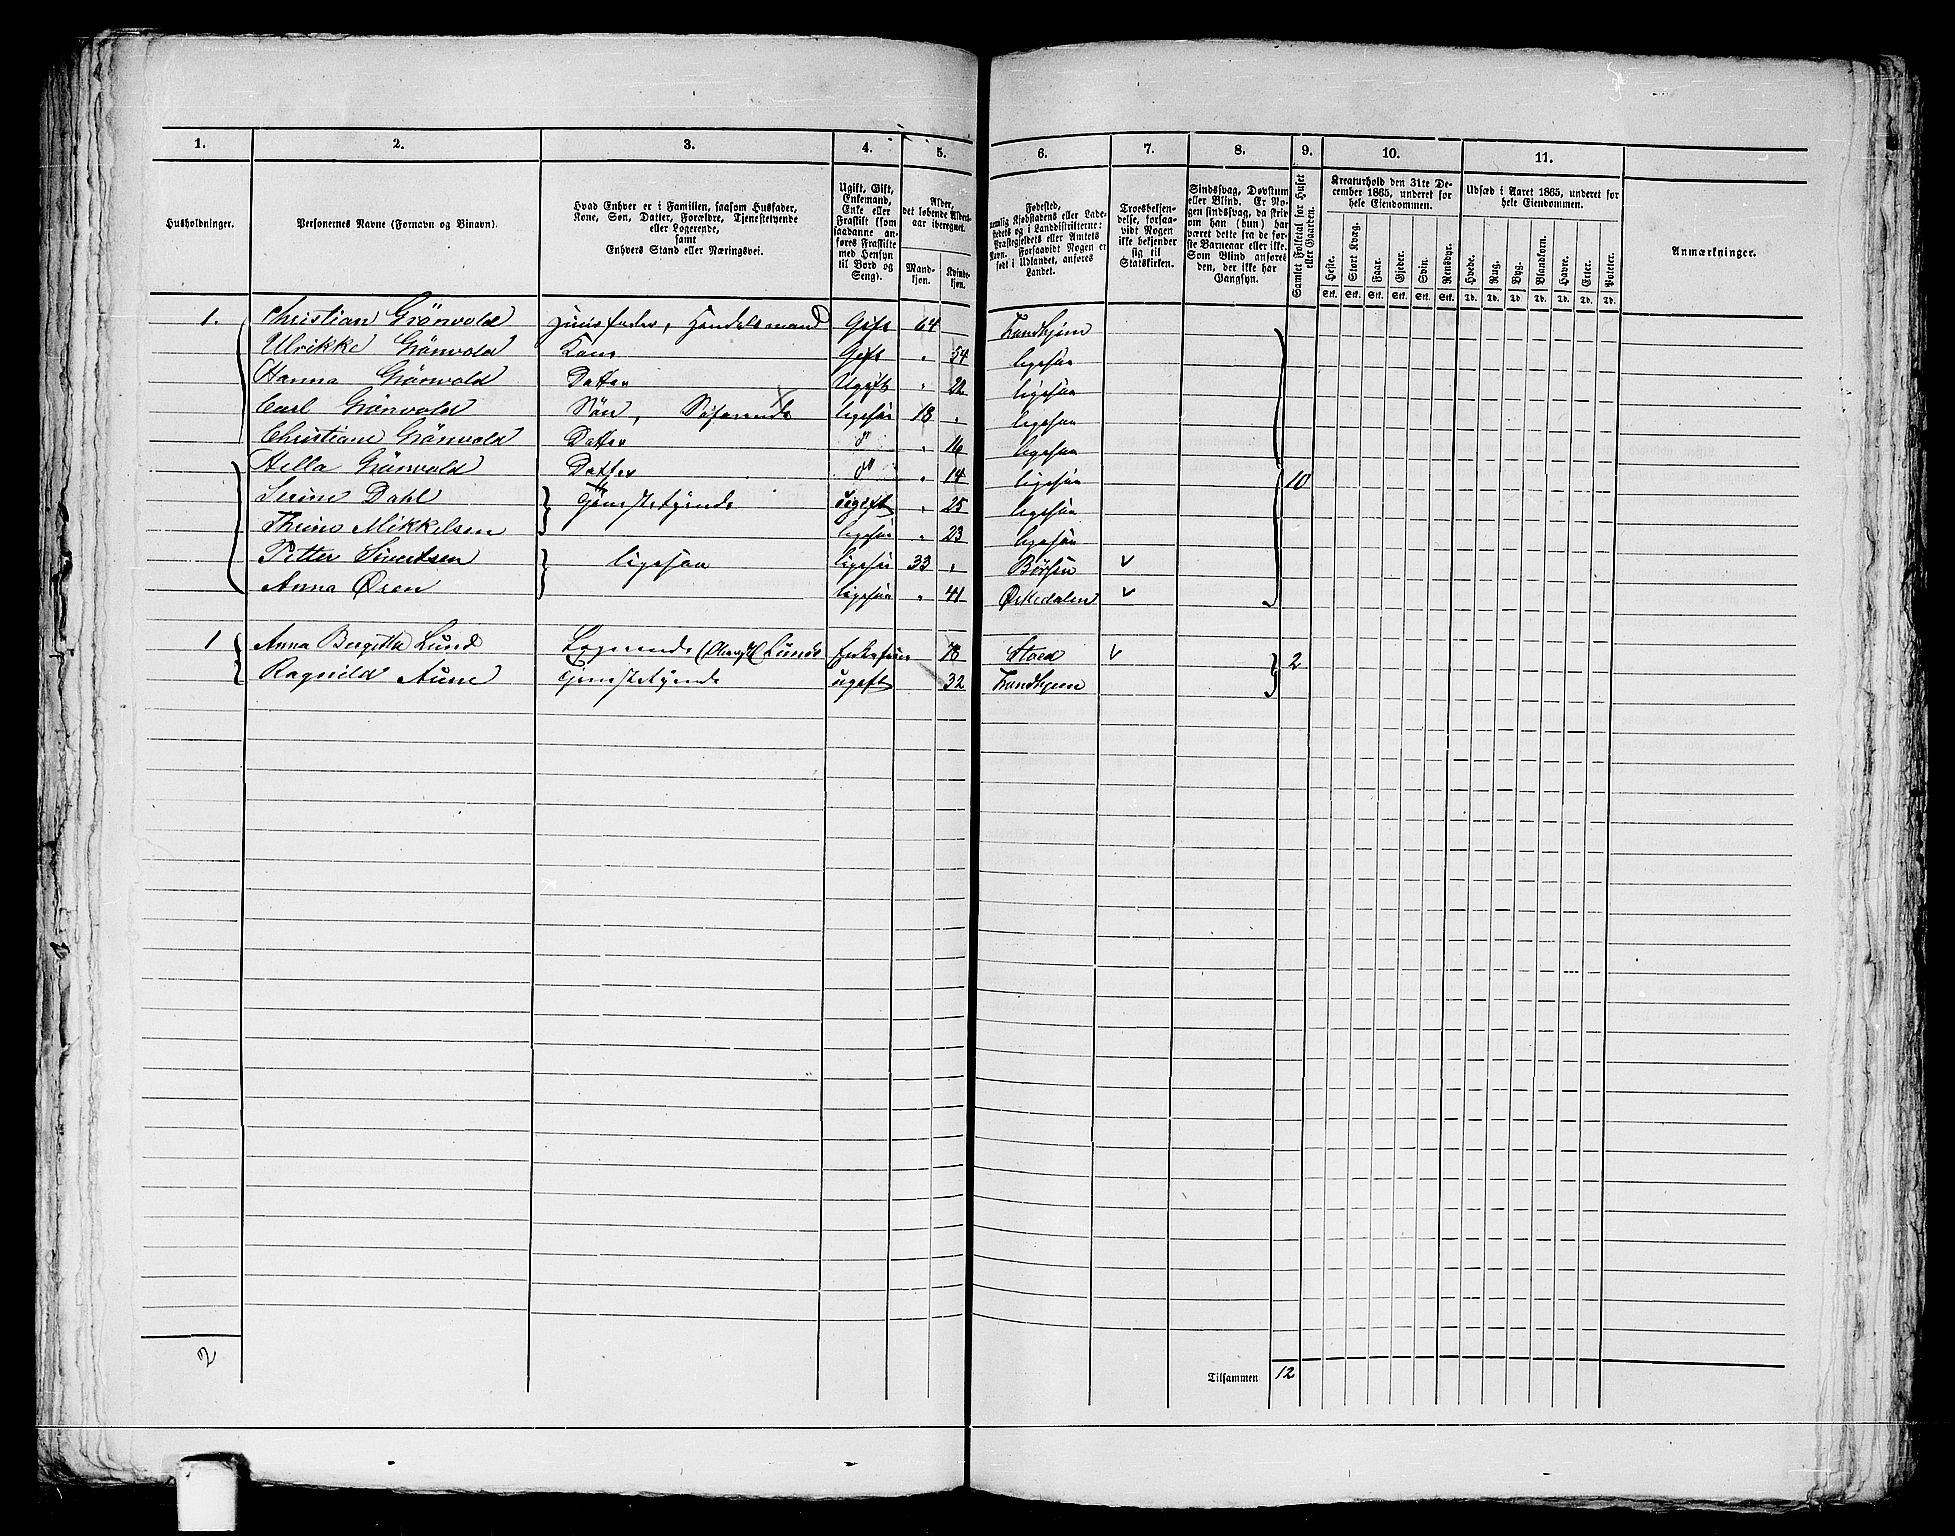 1. 2. 3. 4. 5. 6. 7. 8. 9. 10. 11.
Husholdninger.
Personernes Navne (Fornavn og Binavn).
Hvad Enhver er i Familien, saasom Husfader,
Kone, Søn, Datter, Forældre, Tjenestetyende
eller Logerende,
samt
Enhvers Stand eller Næringsvei.
Ugift, Gift,
Enkemand,
Enke eller
Fraskilt (som
saadanne an-
føres Fraskilte
med Hensyn
til Bord og
Seng).
Alder,
det løbende Alders-
aar iberegnet.
Mand-
kjøn.
Kvinde-
kjøn.
Fødested,
nemlig Kjøbstadens eller Lade-
stedets og i Landdistrikterne:
Præstegjeldets eller Amtets
Navn. Forsaavidt Nogen er
født i Udlandet, anføres
Landet.
Troesbekjen-
delse, forsaa-
vidt Nogen
ikke bekjender
sig til
Statskirken.
Sindssvag, Døvstum
eller Blind. Er No-
gen sindssvag, da skriv
om han (hun) har
været dette fra de før-
ste Barneaar eller ikke.
Som Blind anføres
den, der ikke har
Gangsyn.
Samlet Folketal for Huset
eller Gaarden.
Kreaturhold den 31te De-
cember 1865, underet for
hele Eiendommen.
Heste. Stort Kvæg. Faar. Gjeder. Svin. Rensdyr.
Stk. Stk. Stk. Stk. Stk. Stk.
Udsæd i Aaret 1865, underet for
hele Eiendommen.
Hvede. Rug. Byg. Blandkorn. Havre. Erter. Poteter.
Td. Td. Td. Td. Td. Td. Td.
Anmærkninger.
1. Christian Grönvold Huusfader, Handelsmand Gift 64 Trondhjem
Ulrikke Grönvold Kone Gift " 54 ligesaa
Hanna Grönvold Datter Ugift " 22 ligesaa
Carl Grönvold Sön, Söfarende ligesaa 18 " ligesaa
Christiane Grönvold Datter do " 16 ligesaa
Hella Grönvold Datter do " 14 ligesaa 10
Serine Dahl Tjenestetyende ugift " 25 ligesaa
Thrine Mikkelsen ligesaa " 23 ligesaa
Petter Sivertsen ligesaa ligesaa 33 " Børsen v
Anna Øren ligesaa " 41 Ørkedalen v
1 Anna Bergitta Lund Logerende Lunds Enkefrue 78 Stoed v 2
Ragnild Aune Tjenestetyende ugift 32 Trondhjem
2
Tilsammen 12